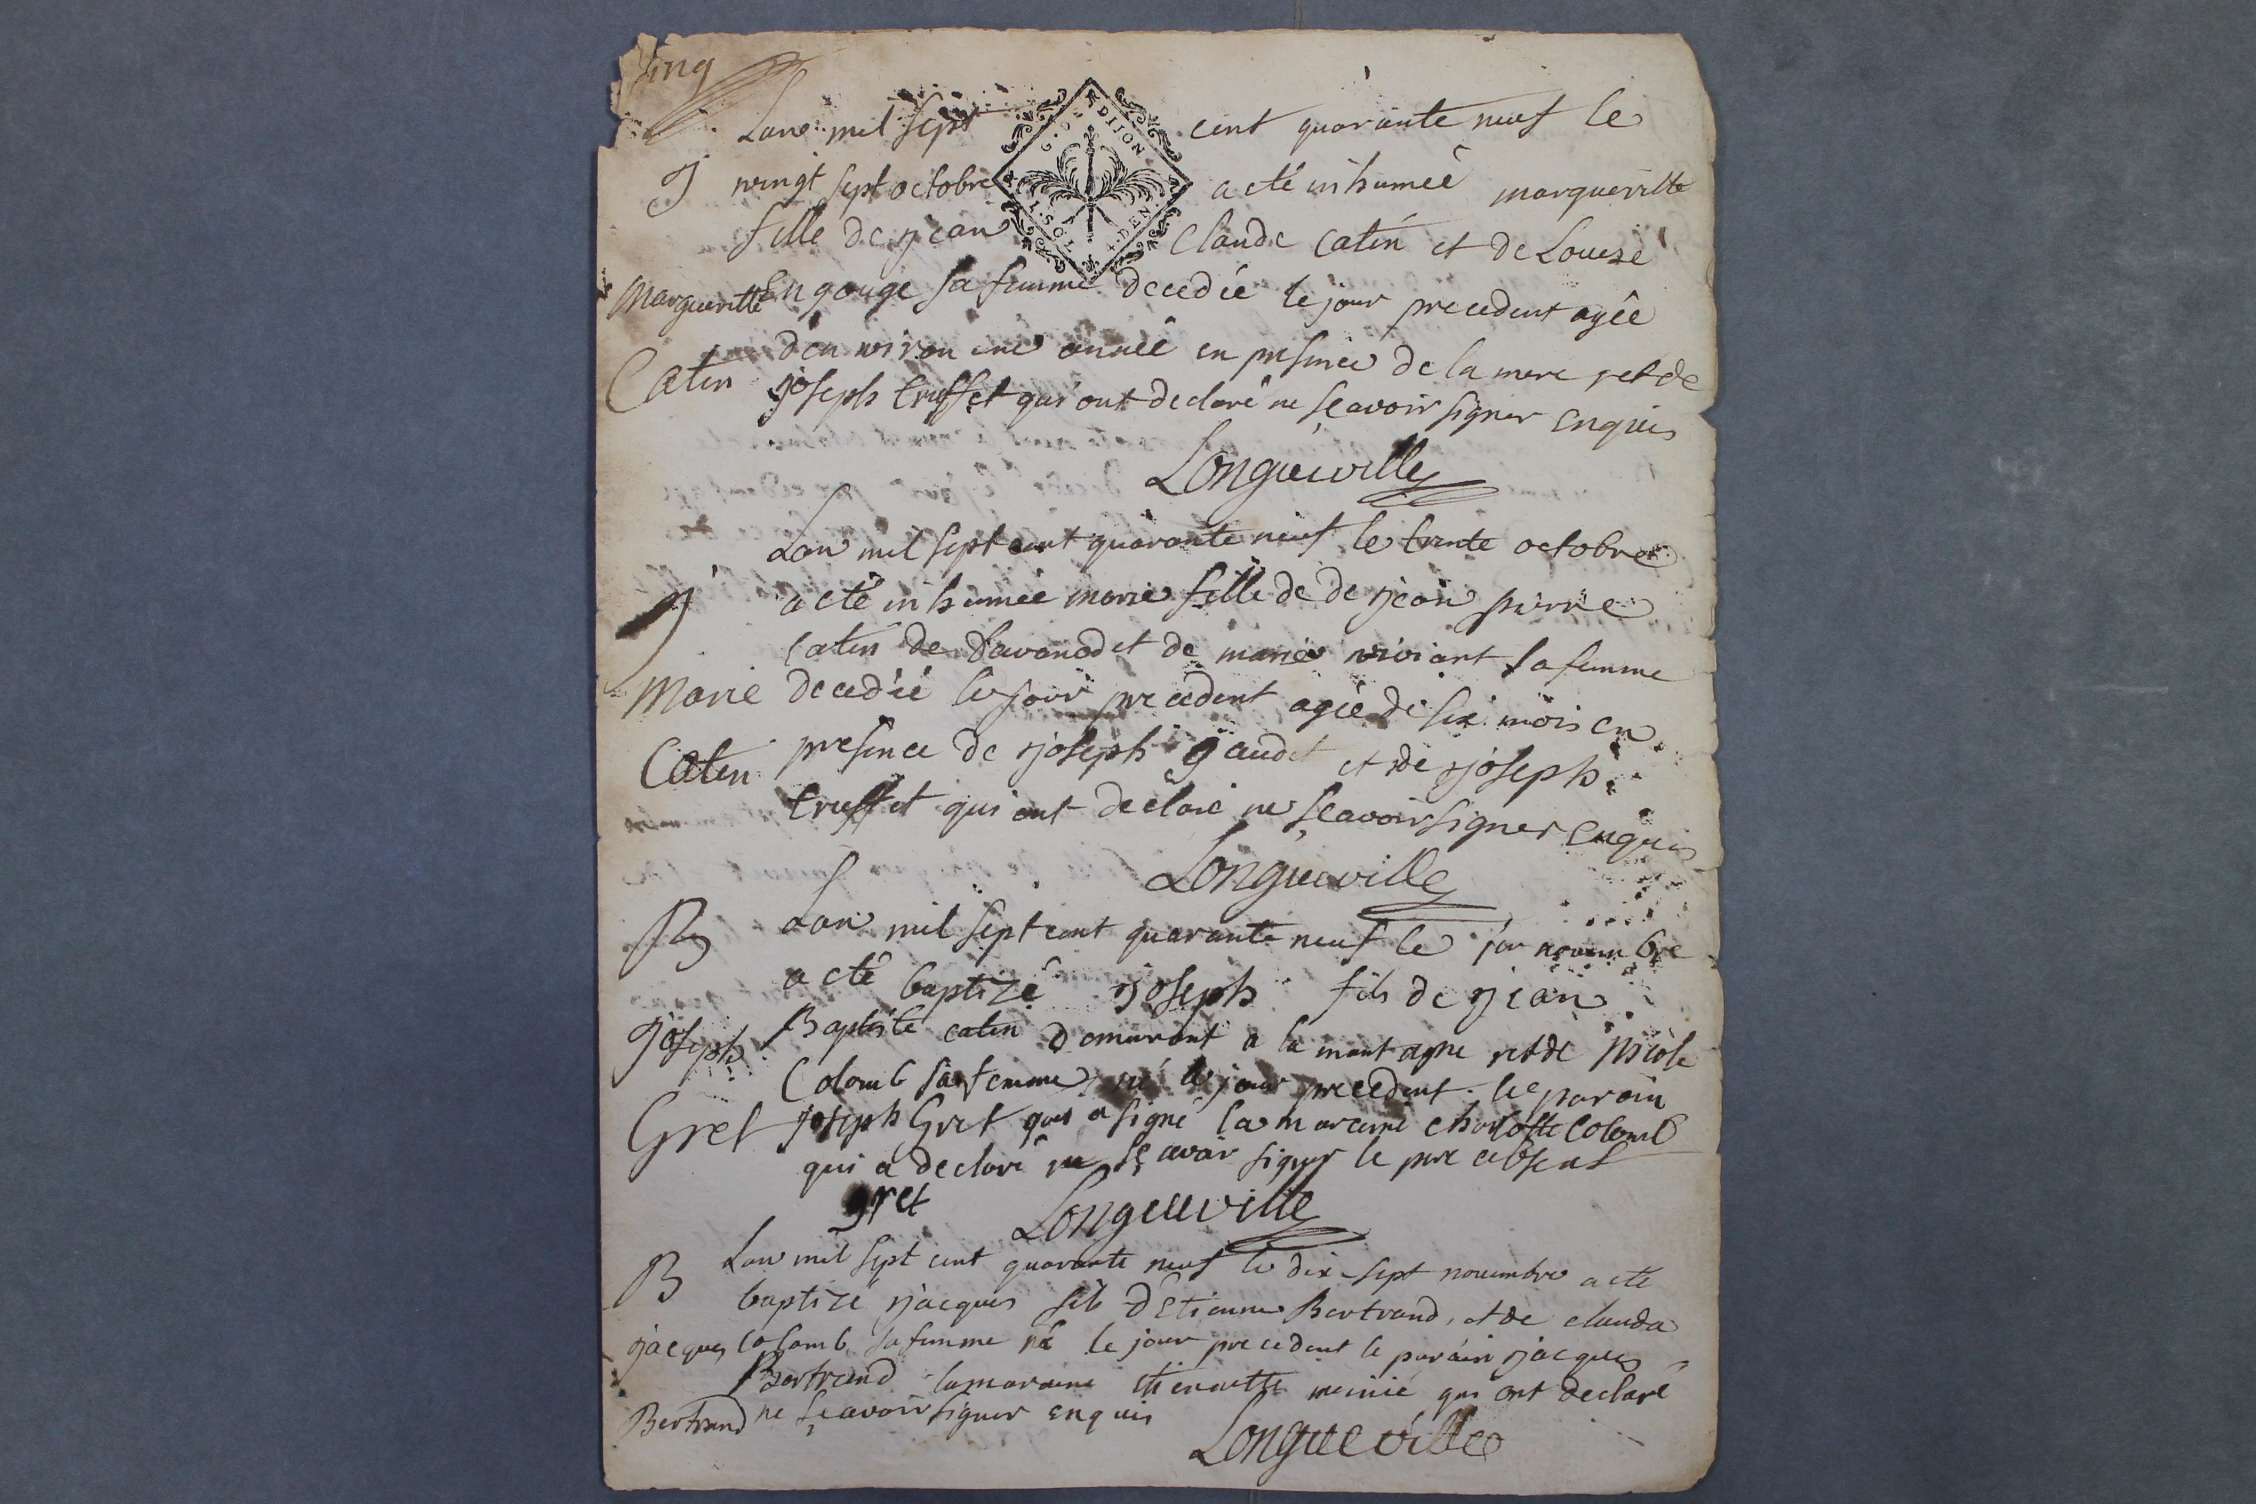 Lan mil sept cent quarante neuf le
vingt sept octobre a eté inhumeé margueritte
fille de jean claude catin et de Louise
G. DE DIJON
1. SOL 4. DEN.
Marguerite
Catin
sa femme decedée le jour precedent agée
denviron une année en presence de la mere et de
joseph truffet qui ont declaré ne sçavoir signer enquis
Longueville
Lan mil sept cent quarante neuf le trente octobre
a eté inhumée marie fille de de jean pierre
catin de et de marie viviant sa femme
Marie
decedée le jour precedent agée de six mois en
Catin
presence de joseph gaudet et de joseph
truffet qui ont declaré ne sçavoir signer enquis
Longueville
B
Lan mil sept cent quarante neuf le 1er novembre
a eté baptizé joseph fils de jean
joseph
Baptiste catin demeurant a la montagne et de Nicole
Colomb sa femme né le jour precedent le parain
Gret
joseph Gret qui a signé la maraine charlotte Colomb
qui a declaré ne sçavoir signer le pere absent
gret
Longueville
B
Lan mil sept cent quarante neuf le dix sept novembre a eté
baptizé jacques fils d'Etienne Bertrand, et de clauda
jacques
colomb sa femme né le jour precedent le parain jacques
Bertrand la maraine etiennette qui ont declaré
Bertrand
ne sçavoir signer enquis
Longueville